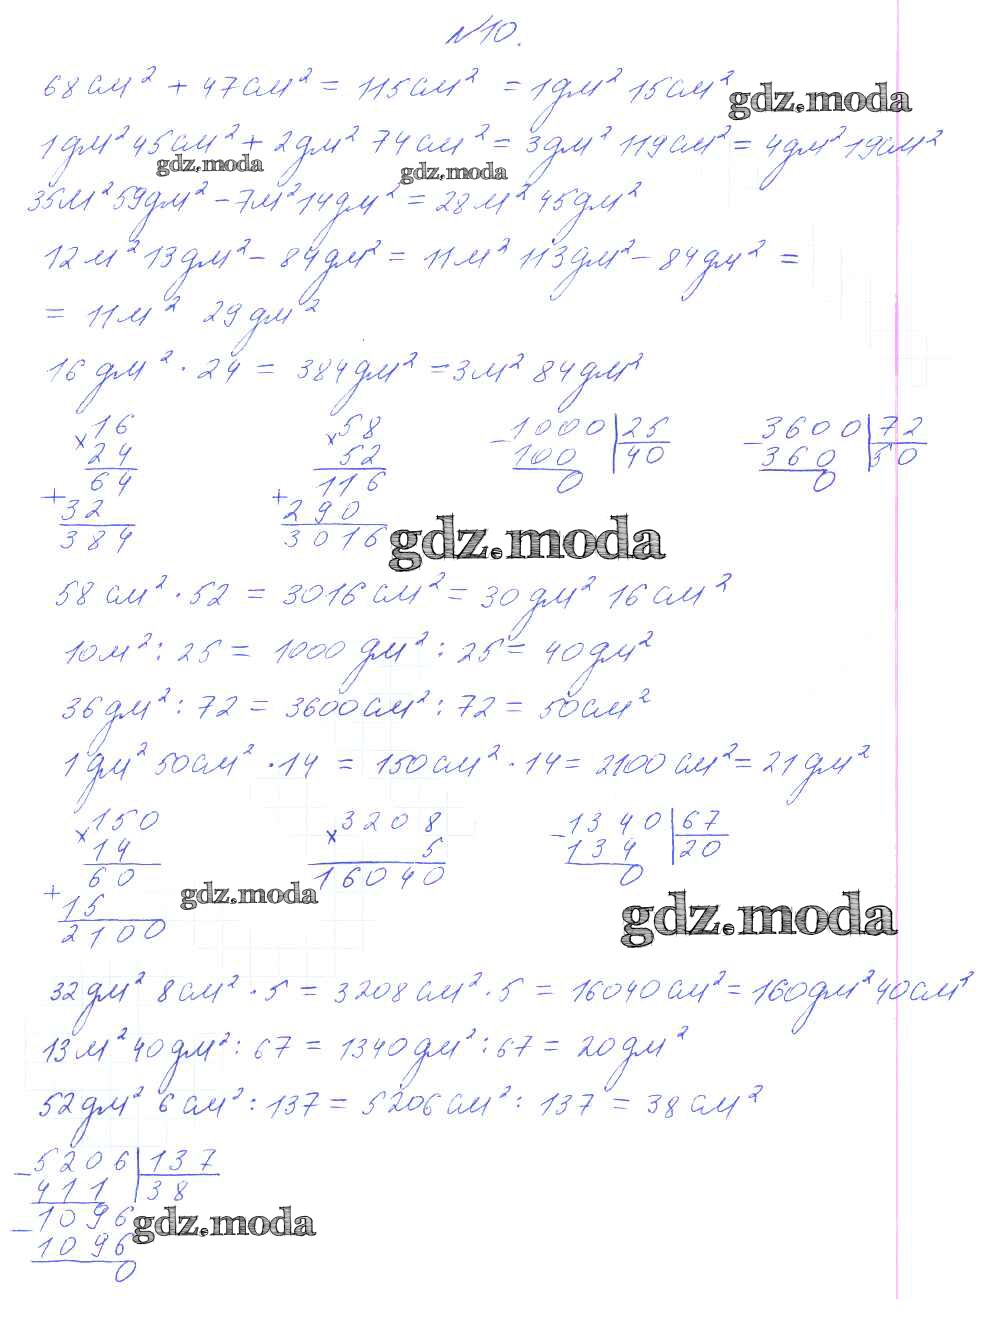 №10.
68см² + 47см² = 115см² = 1дм² 15см²
gdz.moda
1дм² 45см² + 2дм² 74см² = 3дм² 119см² = 4дм² 19см²
gdz.moda gdz.moda
35м² 59дм² - 7м² 14дм² = 28м² 45дм²
12м² 13дм² - 84дм² = 11м² 113дм² - 84дм² =
= 11м² 29дм²
16дм² · 24 = 384дм² = 3м² 84дм²
×16 ×58 -1000|25 -3600|72
24 52 100 40 360 50
64 116 0 0
+32 +290
384 3016
gdz.moda
58см² · 52 = 3016см² = 30дм² 16см²
10м² : 25 = 1000дм² : 25 = 40дм²
36дм² : 72 = 3600см² : 72 = 50см²
1дм² 50см² · 14 = 150см² · 14 = 2100см² = 21дм²
×150 ×3208 -1340|67
14 5 134 20
60 16040 0
+15
2100
gdz.moda gdz.moda
32дм² 8см² · 5 = 3208см² · 5 = 16040см² = 160дм² 40см²
13м² 40дм² : 67 = 1340дм² : 67 = 20дм²
52дм² 6см² : 137 = 5206см² : 137 = 38см²
-5206|137
411 38
-1096
gdz.moda
1096
0